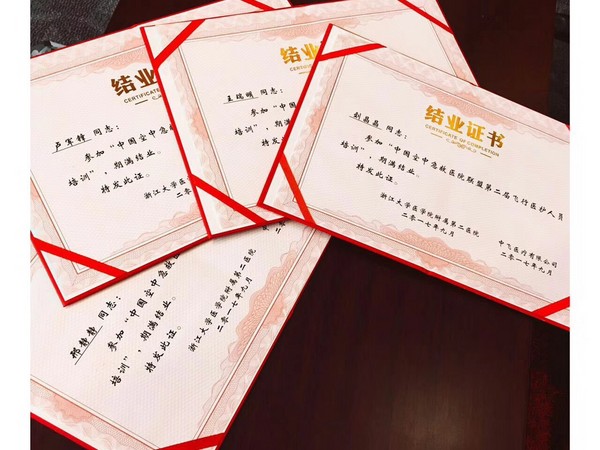 结业
CERTIFICATE
卢军锋 同志：
参加“中国空中急救
培训”，期满结业。
特发此证。
浙江大学医学院附属第二医院
二〇一七年九月
结业
CERTIFICATE
王瑞明 同志：
参加“中国
培训”，期
特发此
浙江大学
结业证书
CERTIFICATE OF COMPLETION
刘磊磊 同志：
参加“中国空中急救医院联盟第二届飞行医护人员
培训”，期满结业。
特发此证。
浙江大学医学院附属第二医院
二〇一七年九月
中飞医疗有限公司
二〇一七年九月
邢静静 同志：
参加“中国空中急救
培训”，期满结业。
特发此证。
浙江大学医学院附属第二医院
二〇一七年九月